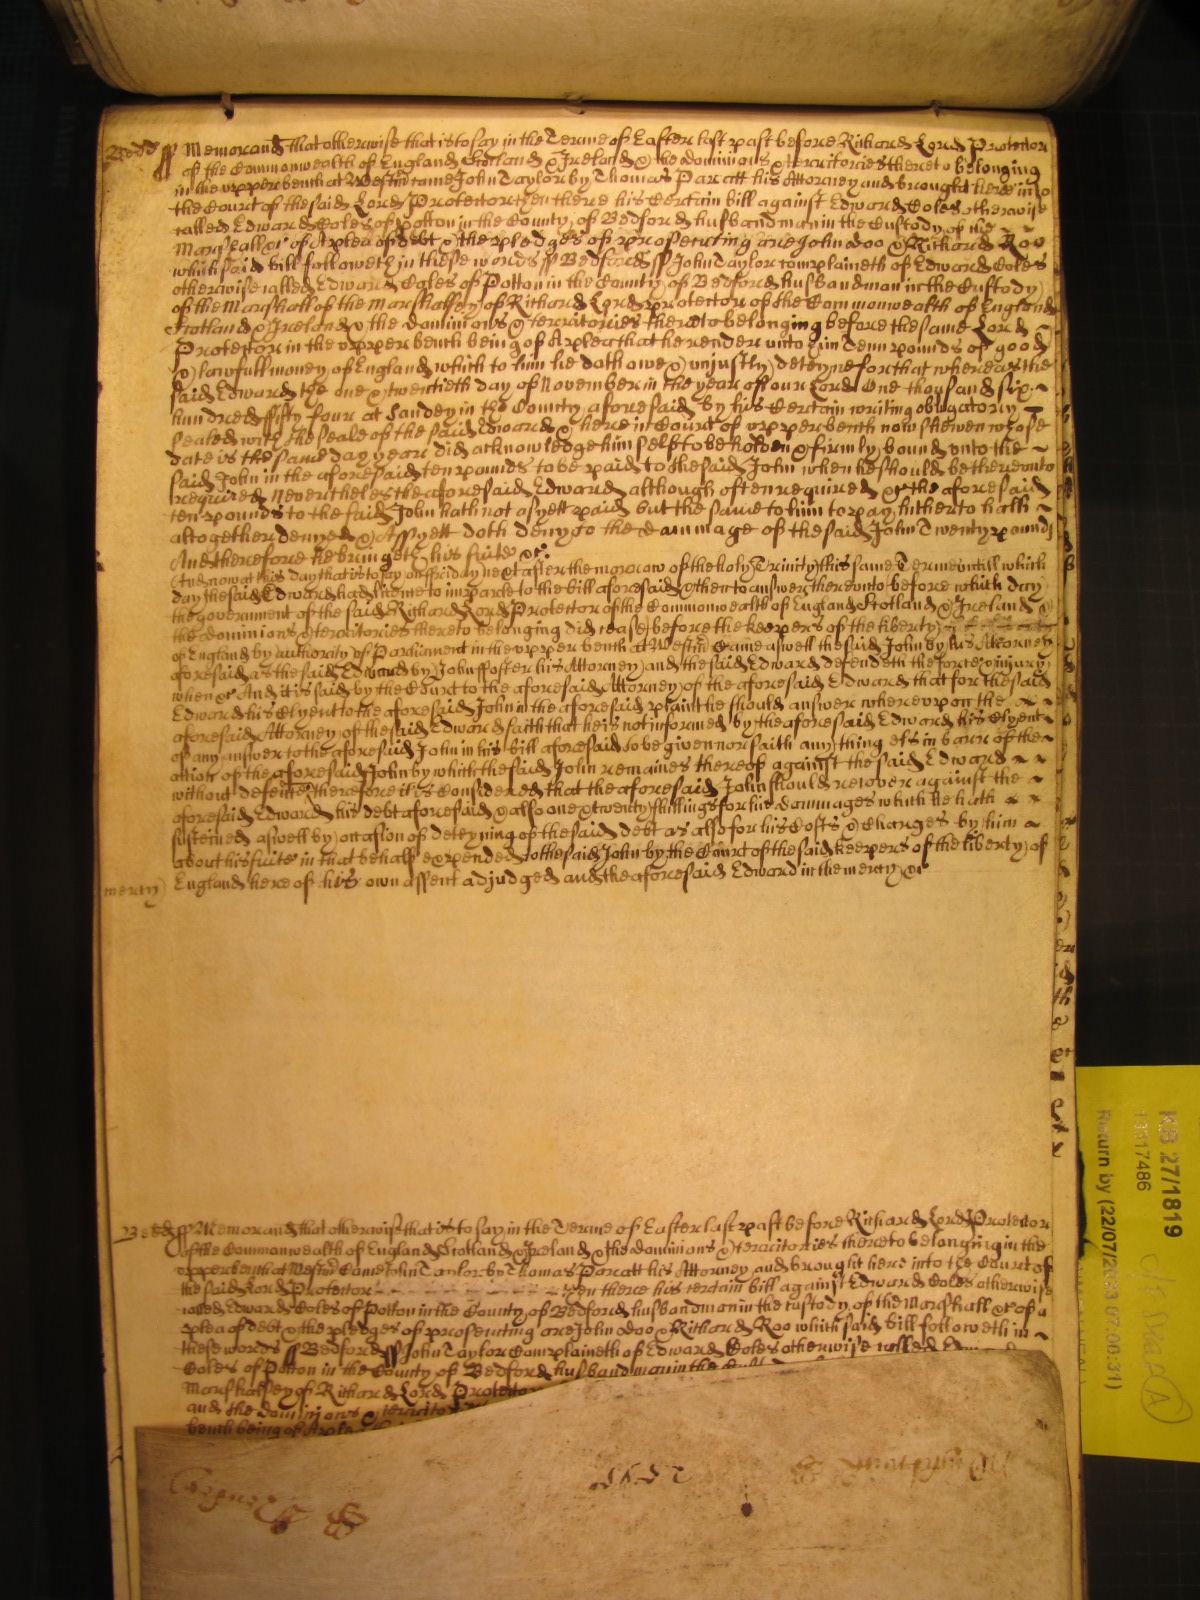 Bedd ss Memorand that otherwise that is to say in the Terme of Easter last past before Richard Lord Protector
of the Commonwealth of England Scotland & Ireland & the dominions & territories thereto belonging
in the upper bench at Westm came John Taylor by Thomas Paratt his Attorney and brought here into
the Court of the said Lord Protector then there his Certain bill against Edward Coles otherwise
called Edward Coles of Potton in the County of Bedford husbandman in the Custody of the
Marshall &c of A plea of debt & the pledges of prosecuting are John doo & Richard Roo
which said bill followeth in these words ss Bedford ss John Taylor complaineth of Edward Coles
otherwise called Edward Coles of Potton in the County of Bedford husbandman in the Custody
of the Marshall of the Marshalsey of Richard Lord protector of the Commonwealth of England
Scotland & Ireland & the dominions & territories thereto belonging before the same Lord
Protector in the upper bench being of A plea that he render unto him Tenn pounds of good
& lawfull money of England which to him he doth owe & unjustly deteyne for that whereas the
said Edward the one & twentieth day of November in the year of our Lord One thousand six
hundred fifty four at Sandey in the County aforesaid by his Certain writing obligatory
sealed with the seale of the said Edward & here in Court of upper bench now shewen whose
date is the same day & year did acknowledge himself to be holden & firmly bound unto the
said John in the aforesaid ten pounds to be paid to the said John when he should be thereunto
required Nevertheles the aforesaid Edward although often required &c the aforesaid
ten pounds to the said John hath not as yett paid but the same to him to pay hitherto hath
altogether denyed & As yett doth deny to the dammage of the said John Twenty pounds
And therefore he bringeth his suite &c
And now at this day that is to say on ffriday next after the morrow of the holy Trinity this same Terme untill which
day the said Edward had license to imparle to the bill aforesaid & then to answer thereunto before which day
the government of the said Richard Lord Protector of the Commonwealth of England Scotland & Ireland &
the dominions & territories thereto belonging did cease before the keepers of the liberty
of England by authority of Parliament in the upper bench at Westm Came aswell the said John by his Attorney
aforesaid as the said Edward by John ffoster his Attorney and the said Edward defendeth the force & injury
when &c And it is said by the Court to the aforesaid Attorney of the aforesaid Edward that for the said
Edward his Clyent to the aforesaid John in the aforesaid plaint he should answer whereupon the
aforesaid Attorney of the said Edward saith that he is not informed by the aforesaid Edward his Clyent
of any answer to the aforesaid John in his bill aforesaid to be given nor saith any thing els in barr of the
action of the aforesaid John by which the said John remaines thereof against the said Edward
without defence therefore it is Considered that the aforesaid John should recover against the
aforesaid Edward his debt aforesaid & also one & twenty shillings for his dammages which he hath
susteined aswell by occasion of deteyning of the said debt as also for his Costs & Charges by him
about his suite in that behalf expended to the said John by the Court of the said keepers of the liberty of
mercy England here of his own assent adjudged and the aforesaid Edward in the mercy &c
Bedd ss Memorand that otherwise that is to say in the Terme of Easter last past before Richard Lord Protector
of the Commonwealth of England Scotland & Ireland & the dominions & territories thereto belonging in the
upper bench at Westm Came John Taylor by Thomas Paratt his Attorney and brought here into the Court of
the said Lord Protector then there his certain bill against Edward Coles otherwise
called Edward Coles of Potton in the County of Bedford husbandman in the custody of the Marshall &c of a
plea of debt & the pledges of prosecuting are John doo & Richard Roo which said bill followeth in
these words ss Bedford ss John Taylor Complaineth of Edward Coles otherwise called
Coles of Potton in the County of Bedford husbandman in the
Marshalsey of Richard Lord Protector
and the dominions &
bench being of A plea
KB 27/1819
13317486
Return by (22/07/2003 07:00:31)
A